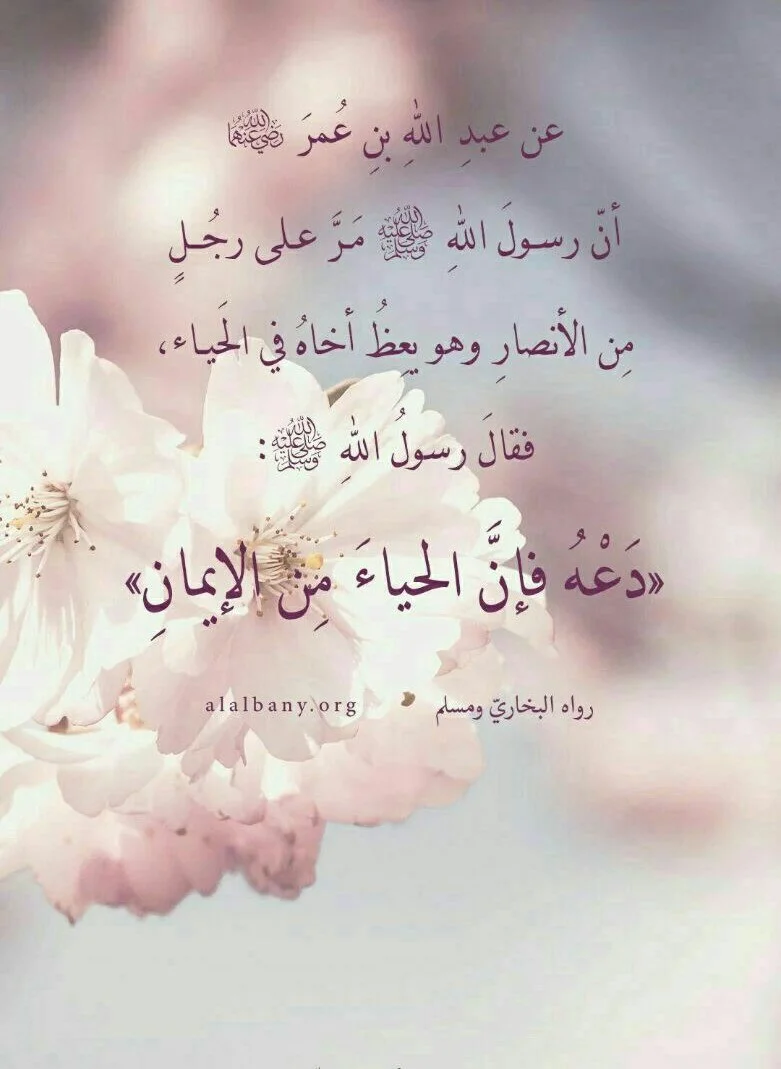 عن عبدِ اللهِ بنِ عُمرَ رَضِيَ اللهُ عَنْهُمَا
أنّ رسولَ اللهِ ﷺ مَرَّ على رجُلٍ
مِن الأنصارِ وهو يعِظُ أخاهُ في الَحياء،
فقالَ رسولُ اللهِ ﷺ :
«دَعْهُ فإنَّ الحياءَ مِن الإيمانِ»
رواه البخاريّ ومسلم alalbany.org